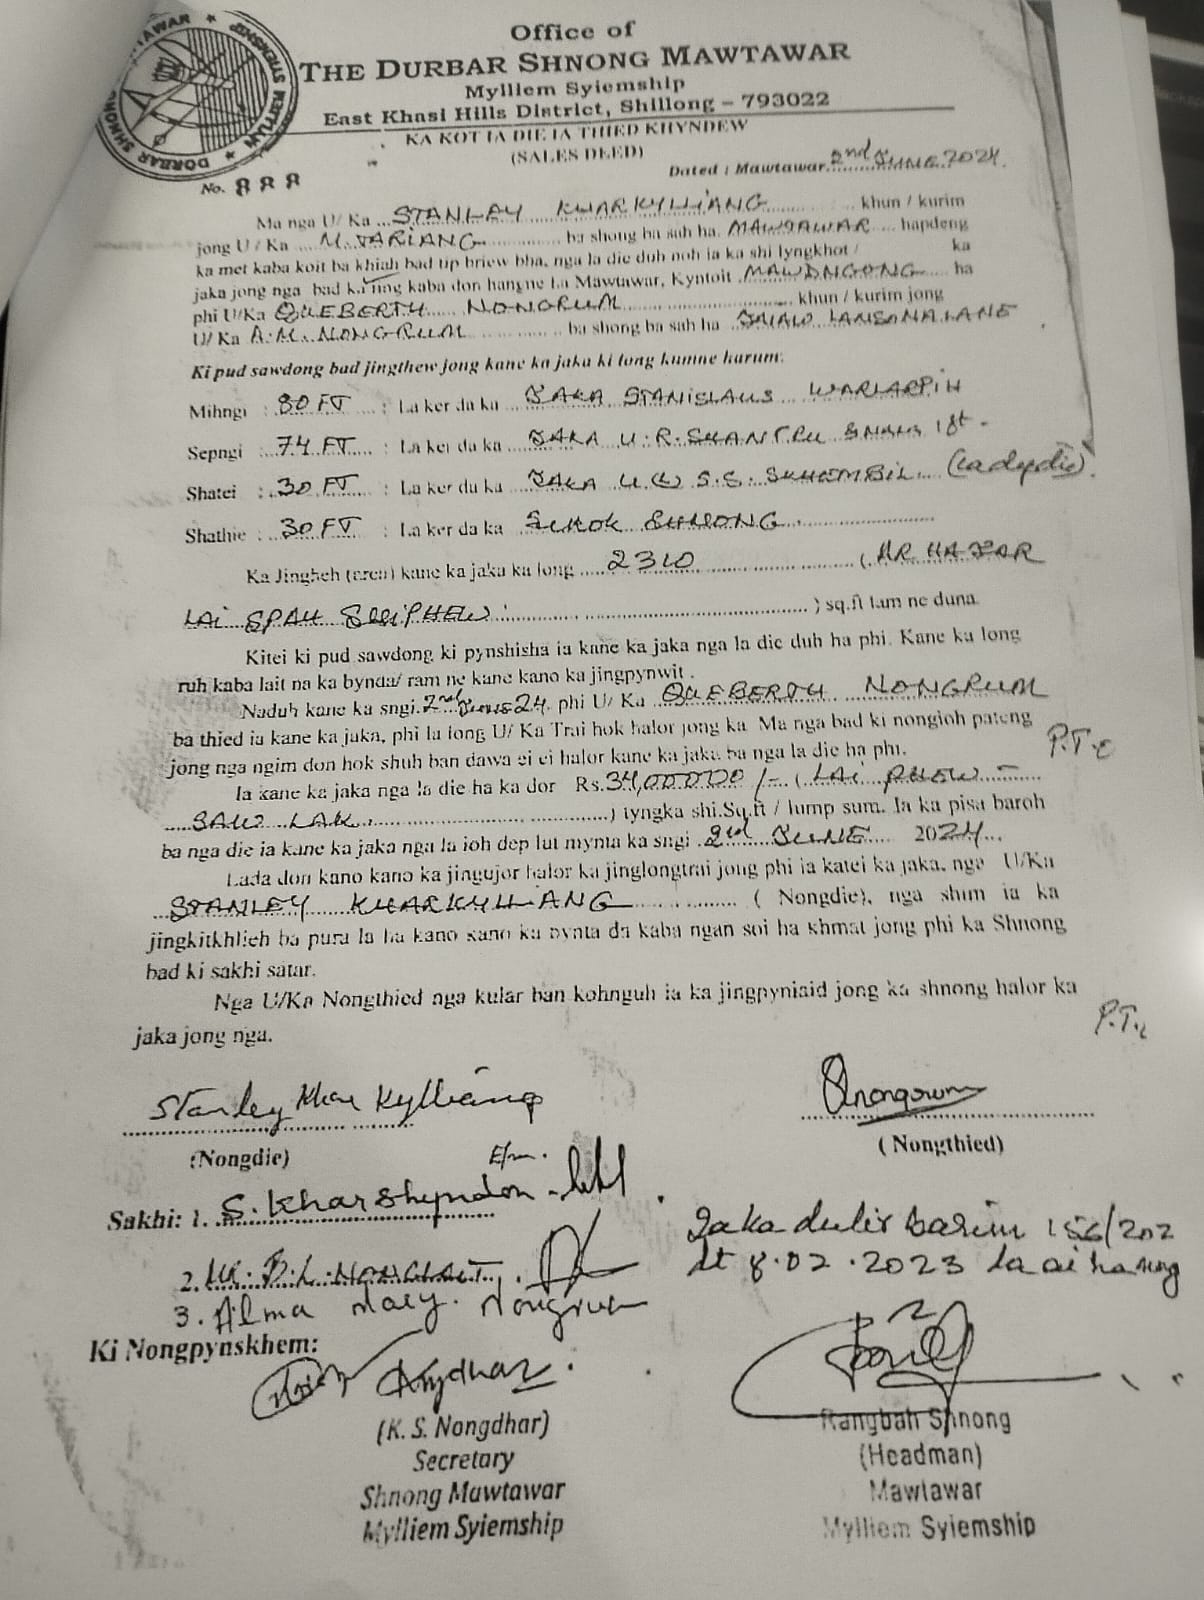 Office of
THE DURBAR SHNONG MAWTAWAR
Mylliem Syiemship
East Khasi Hills District, Shillong – 793022
KA KOT IA DIE IA THIED KHYNDEW
(SALES DEED)
Dated : Mawtawar 2nd JUNE 2024
No. 888
Ma nga U/ Ka STANLAY KHARKYLLIANG khun / kurim
jong U / Ka M. TARIANG ba shong ba sah ha. MAWTAWAR hapdeng
ka met kaba koit ba khiah bad tip briew bha, nga la die duh noh ia ka shi lyngkhot / ka
jaka jong nga bad ka ïing kaba don hangne ha Mawtawar, Kyntoit MAWDNGONG ha
phi U/Ka QUEBERTH NONGRUM khun / kurim jong
U/ Ka A.M. NONGRUM ba shong ba sah ha JAIAW LANSONALANE
Ki pud sawdong bad jingthew jong kane ka jaka ki long kumne harum:
Mihngi : 80 FT : La ker da ka JAKA STANISLAUS WARLARPIH
Sepngi : 74 FT : La ker da ka JAKA U.R. 1st
Shatei : 30 FT : La ker da ka JAKA U (L) S.S. (Ladydie)
Shathie : 30 FT : La ker da ka SUROK SHNONG
Ka Jingheh (area) kane ka jaka ka long 2310 (AR HAJAR
LAI SPAH SHIPHEW ) sq.ft lam ne duna.
Kitei ki pud sawdong ki pynshisha ia kane ka jaka nga la die duh ha phi. Kane ka long
ruh kaba lait na ka bynda/ ram ne kane kano ka jingpynwit .
Naduh kane ka sngi 2nd June 24 phi U/ Ka QUEBERTH NONGRUM
ba thied ia kane ka jaka, phi la long U/ Ka Trai hok halor jong ka. Ma nga bad ki nongioh pateng
jong nga ngim don hok shuh ban dawa ei ei halor kane ka jaka ba nga la die ha phi. P.T.O
Ia kane ka jaka nga la die ha ka dor Rs. 34,00000 /- ( LAI PHEW –
SAW LAK ) tyngka shi.Sq.ft / lump sum. Ia ka pisa baroh
ba nga die ia kane ka jaka nga la ioh dep lut mynta ka sngi 2nd JUNE 2024
Lada don kano kano ka jingujor halor ka jinglongtrai jong phi ia katei ka jaka, nga U/Ka
STANLEY KHARKYLLIANG ( Nongdie), nga shim ia ka
jingkitkhlieh ba pura la ha kano kano ka bynta da kaba ngan soi ha khmat jong phi ka Shnong
bad ki sakhi satar.
Nga U/Ka Nongthied nga kular ban kohnguh ia ka jingpyniaid jong ka shnong halor ka
jaka jong nga. P.T.
Stanley Khar Kylliang
(Nongdie)
Qnongrum
( Nongthied)
Sakhi: 1. S. Kharshyndon
2. NONGLAIT
3. Alma Mary. Nongrum
Jaka dulir barim 156/202
dt 8.02.2023 la ai ha
Ki Nongpynskhem:
(K. S. Nongdhar)
Secretary
Shnong Mawtawar
Mylliem Syiemship
Rangbah Shnong
(Headman)
Mawtawar
Mylliem Syiemship